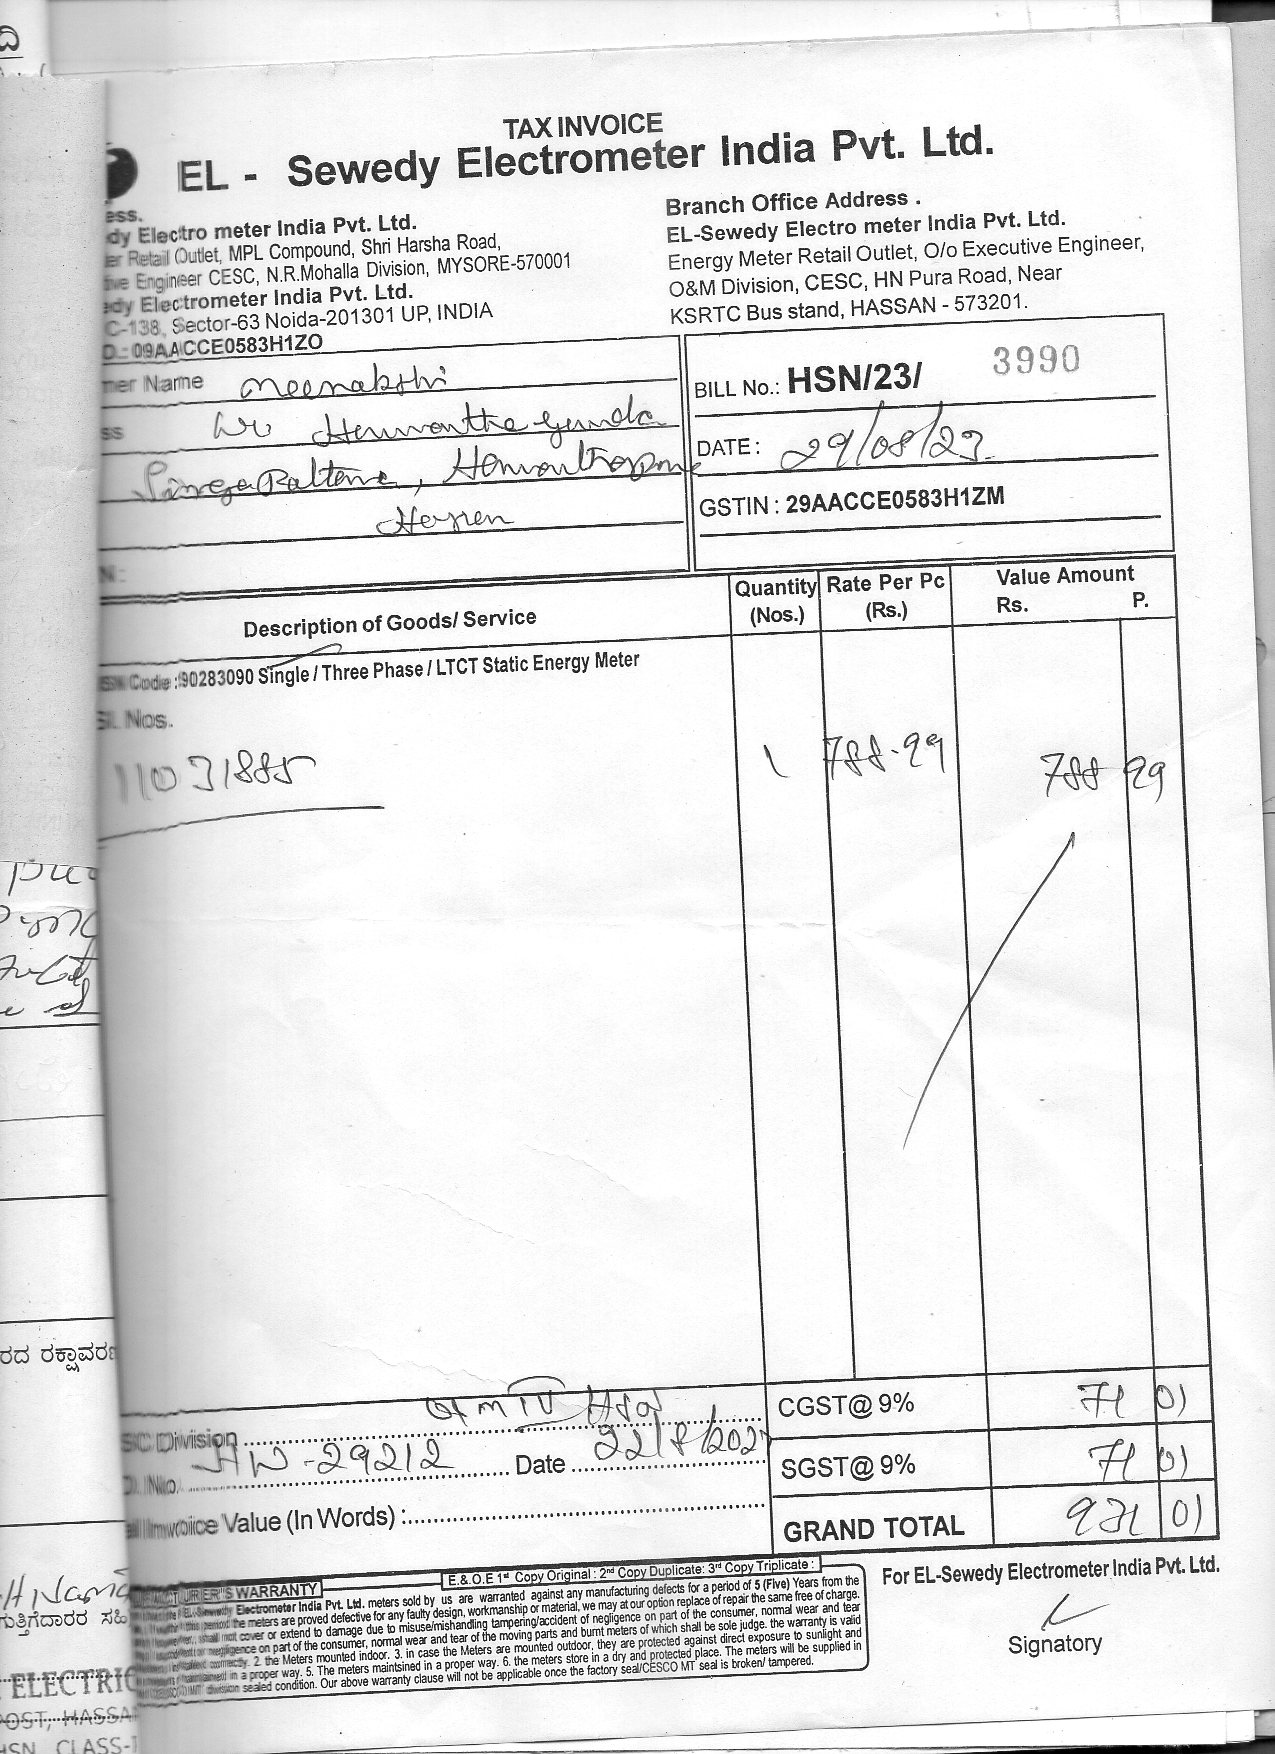 TAX INVOICE
EL - Sewedy Electrometer India Pvt. Ltd.
ess.
dy Electro meter India Pvt. Ltd.
er Retail Outlet, MPL Compound, Shri Harsha Road,
ive Engineer CESC, N.R.Mohalla Division, MYSORE-570001
edy Electrometer India Pvt. Ltd.
C-138, Sector-63 Noida-201301 UP, INDIA
D.: 09AACCE0583H1ZO
Branch Office Address .
EL-Sewedy Electro meter India Pvt. Ltd.
Energy Meter Retail Outlet, O/o Executive Engineer,
O&M Division, CESC, HN Pura Road, Near
KSRTC Bus stand, HASSAN - 573201.
mer Name meenakshi
ss
N :
BILL No.: HSN/23/ 3990
DATE : 29/08/23
GSTIN : 29AACCE0583H1ZM
Description of Goods/ Service
Quantity (Nos.)
Rate Per Pc (Rs.)
Value Amount Rs. P.
SN Code :90283090 Single / Three Phase / LTCT Static Energy Meter
Sl. Nos.
11031885 1 788-99 788 99
SC Division
D. No. 29212 Date 22/8/202
Invoice Value (In Words) :
CGST@ 9% 71 01
SGST@ 9% 71 01
GRAND TOTAL 931 01
E.& O.E 1st Copy Original : 2nd Copy Duplicate: 3rd Copy Triplicate :
CTURER'S WARRANTY
EL-Sewedy Electrometer India Pvt. Ltd. meters sold by us are warranted against any manufacturing defects for a period of 5 (Five) Years from the
the meters are proved defective for any faulty design, workmanship or material, we may at our option replace of repair the same free of charge.
However, shall not cover or extend to damage due to misuse/mishandling tampering/accident of negligence on part of the consumer, normal wear and tear
negligence on part of the consumer, normal wear and tear of the moving parts and burnt meters of which shall be sole judge. the warranty is valid
correctly. 2. the Meters mounted indoor. 3. in case the Meters are mounted outdoor, they are protected against direct exposure to sunlight and
in a proper way. 5. The meters maintsined in a proper way. 6. the meters store in a dry and protected place. The meters will be supplied in
sealed condition. Our above warranty clause will not be applicable once the factory seal/CESCO MT seal is broken/ tampered.
For EL-Sewedy Electrometer India Pvt. Ltd.
Signatory
ರದ ರಕ್ಷಾವರಣ
ಗುತ್ತಿಗೆದಾರರ ಸಹಿ
ELECTRIC
POST, HASSA
HSN CLASS-1